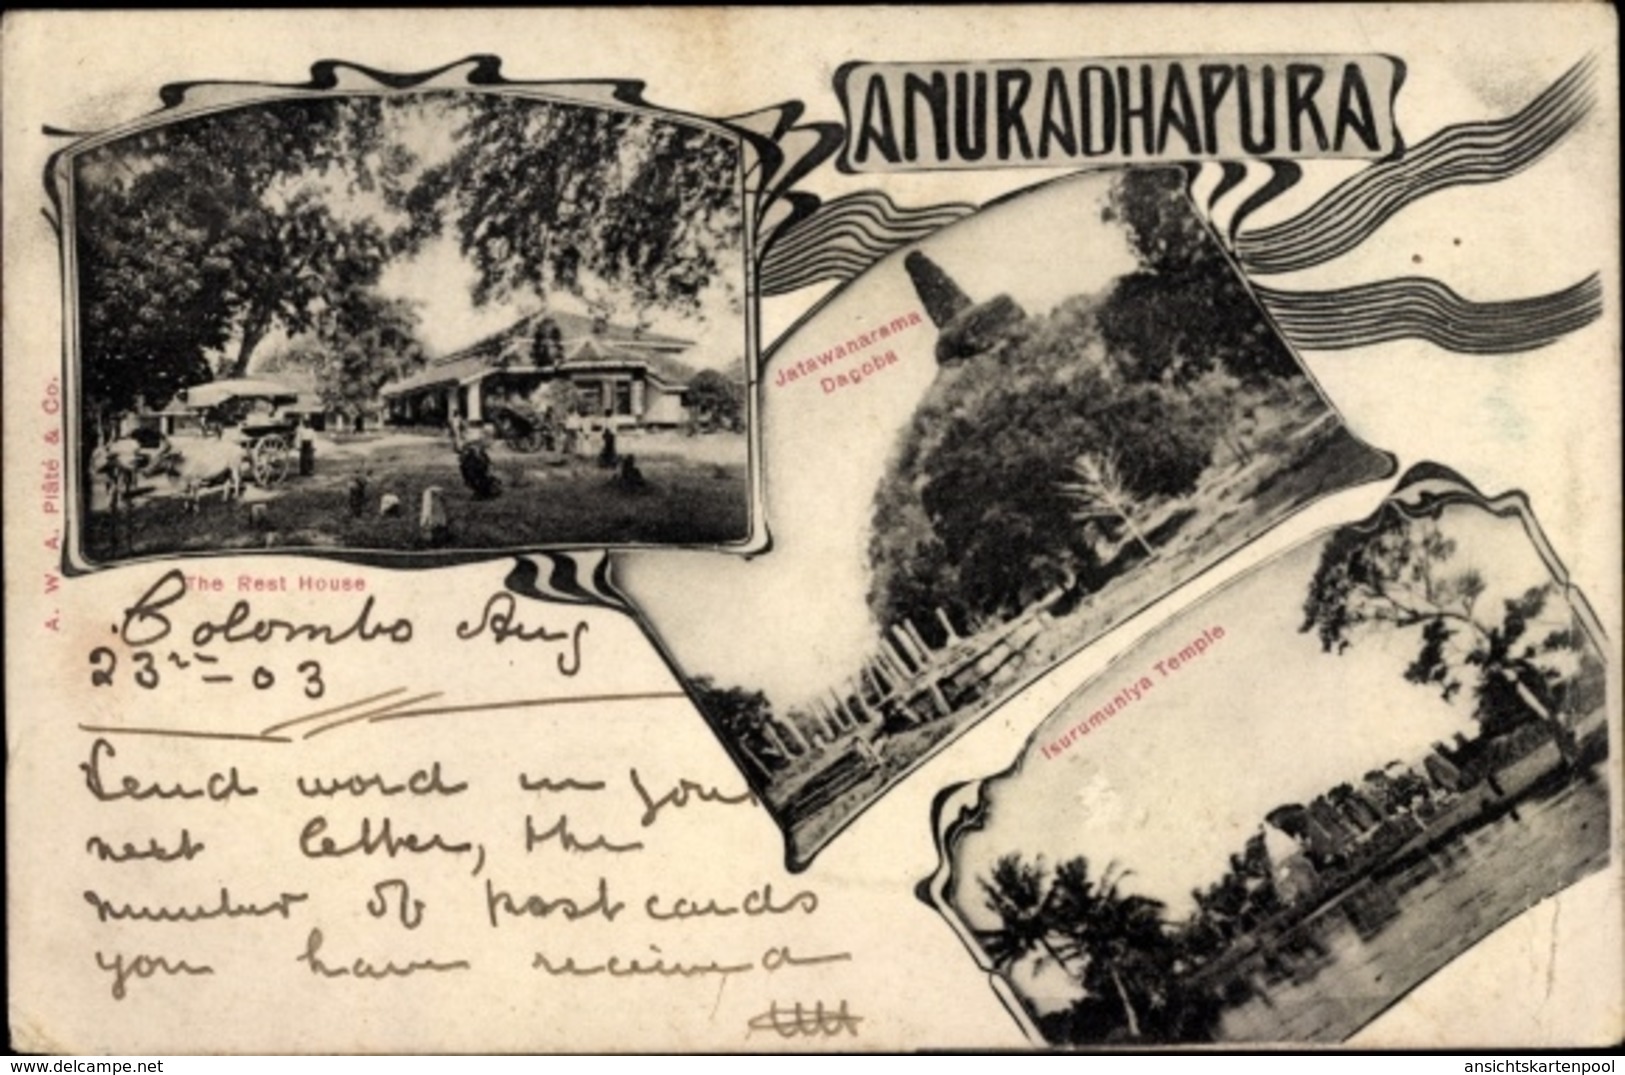 ANURADHAPURA
Jatawanarama
Dagoba
Isurumuniya Temple
A. W. A. Plâté & Co.
The Rest House
Colombo Aug
23rd - 03
Send word in your
next letter, the
number of postcards
you have received
www.delcampe.net
ansichtskartenpool